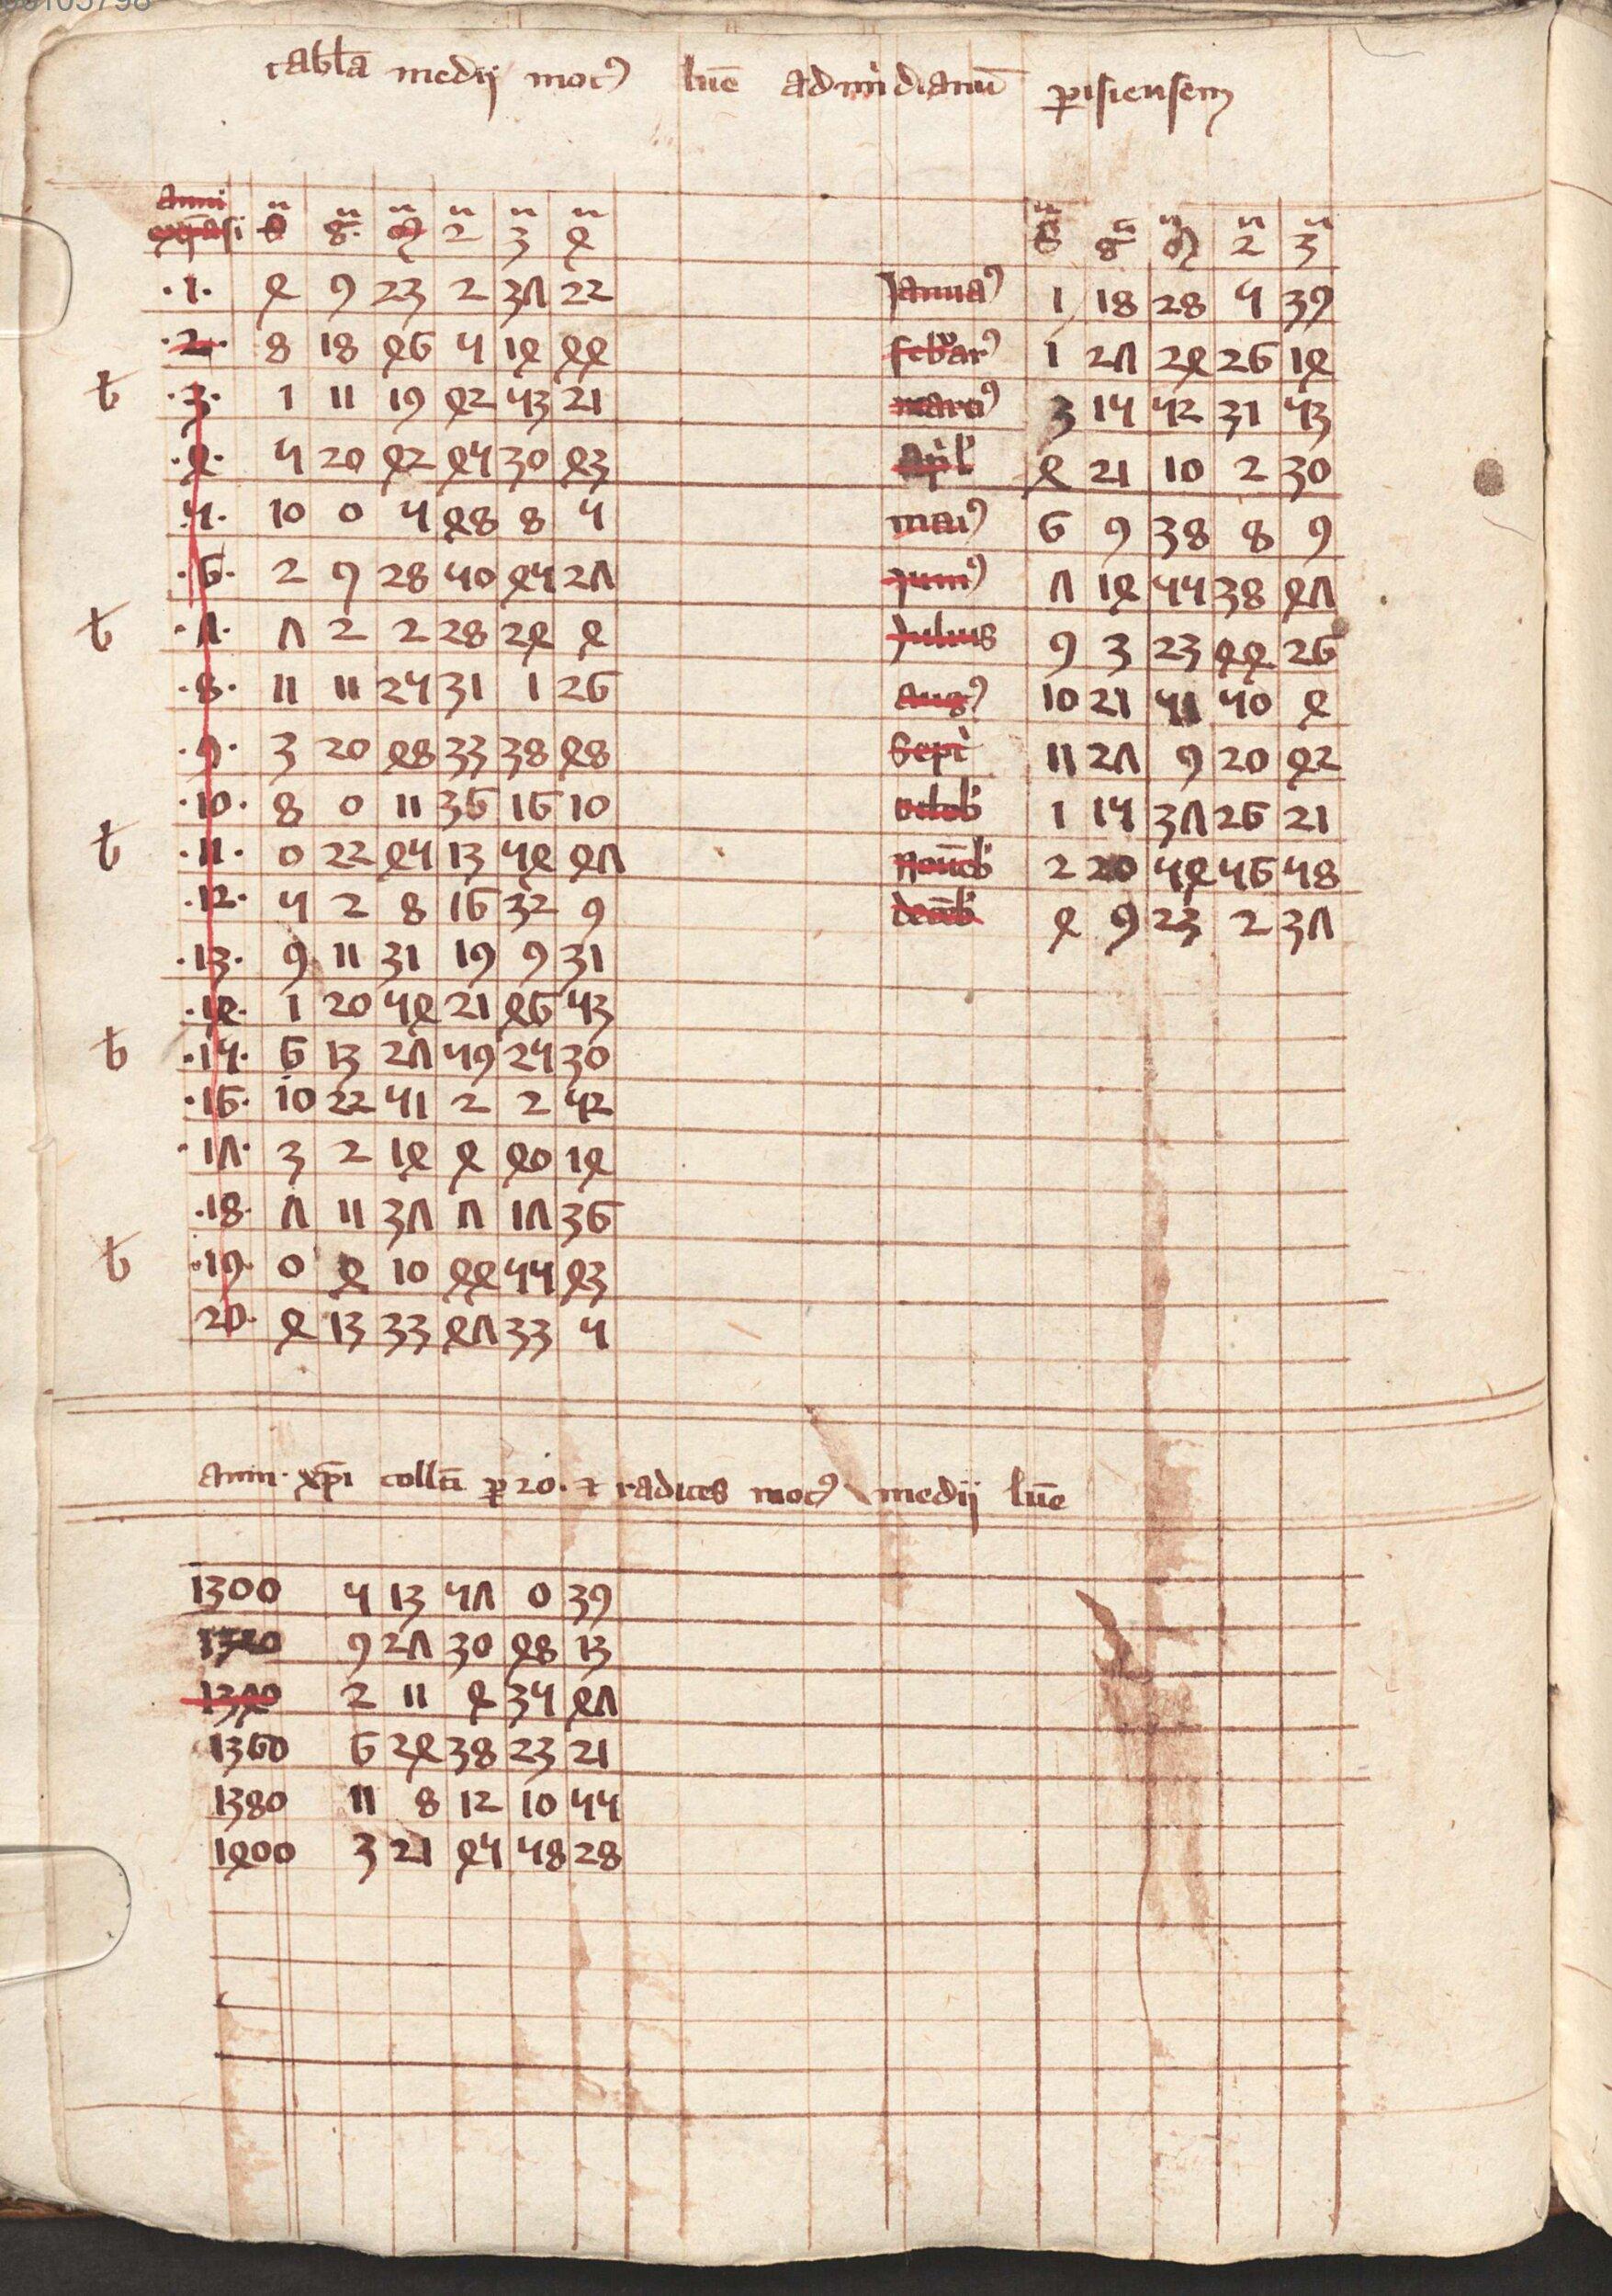 tabła medij motꝰ lūe ad mͥdianū ꝑisiensem
anni
exp̄āsi s̈ g̈ m̈ 2̈ 3̈ 4̈
·1· 4 9 23 2 37 22
·2· 8 18 46 5 14 44
b ·3· 1 11 19 42 53 21
·4· 5 20 42 45 30 43
·5· 10 0 5 48 8 5
·6· 2 9 28 50 45 27
b ·7· 7 2 2 28 24 4
·8· 11 11 25 31 1 26
·9· 3 20 48 33 38 48
·10· 8 0 11 36 16 10
b ·11· 0 22 45 13 54 47
·12· 5 2 8 16 32 9
·13· 9 11 31 19 9 31
·14· 1 20 54 21 46 53
b ·15· 6 13 27 59 25 30
·16· 10 22 51 2 2 52
·17· 3 2 14 4 40 14
·18· 7 11 37 7 17 36
b ·19· 0 4 10 44 55 43
20· 4 13 33 47 33 5
g̈ m̈ 2̈ 3̈
Januaꝰ 1 18 28 5 39
febͬarꝰ 1 27 24 26 14
marciꝰ 3 15 52 31 53
apͥl 4 21 10 2 30
maiꝰ 6 9 38 8 9
juniꝰ 7 14 55 38 47
Julius 9 3 23 44 26
augꝰ 10 21 51 50 4
Septͥ 11 27 9 20 42
octob 1 15 37 26 21
nouēb 2 20 54 56 58
decēb 4 9 23 2 37
anni· xp̄i collc̄ti ꝑ 20· ⁊ radices motꝰ medij lūe
1300 5 13 57 0 39
1320 9 27 30 48 13
1340 2 11 4 35 47
1360 6 24 38 23 21
1380 11 8 12 10 55
1400 3 21 45 58 28